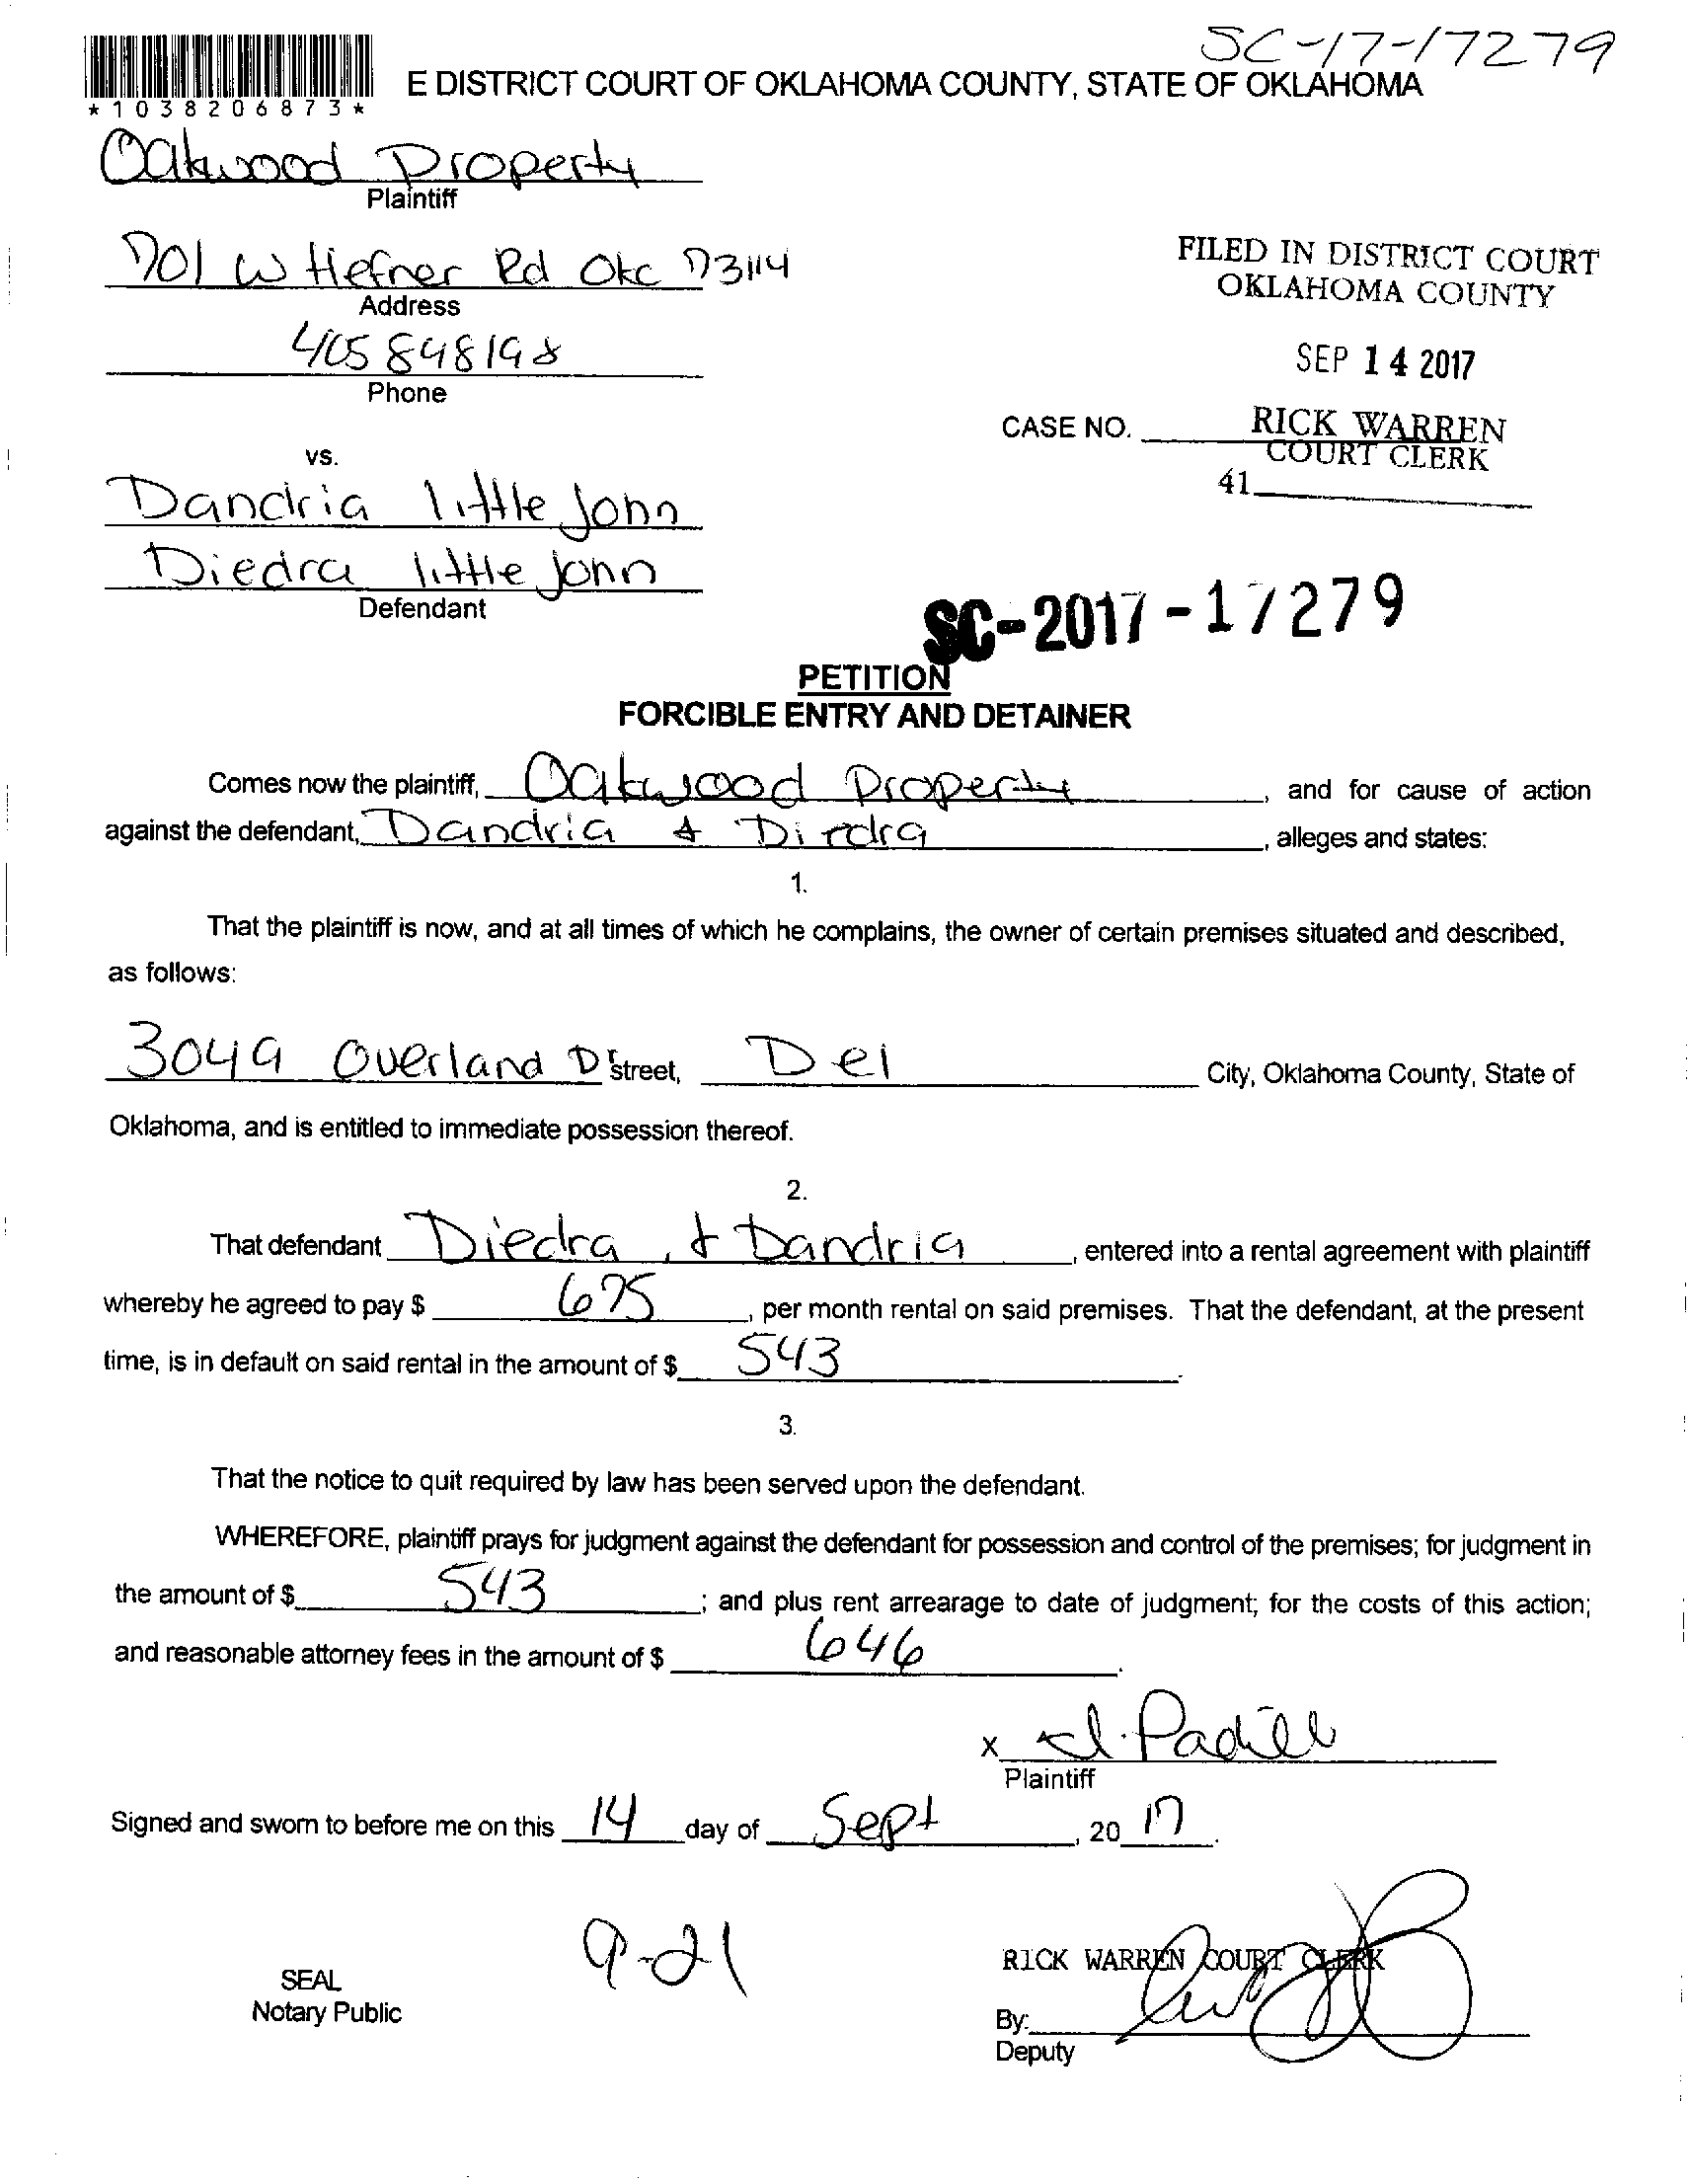 SC-17-17279
E DISTRICT COURT OF OKLAHOMA COUNTY, STATE OF OKLAHOMA
*1038206873*
Oakwood Property
Plaintiff
701 W Hefner Rd Okc 73114
Address
405 848 198
Phone
FILED IN DISTRICT COURT
OKLAHOMA COUNTY
SEP 14 2017
RICK WARREN
COURT CLERK
41
CASE NO.
vs.
Dandria little John
Diedra little John
Defendant
SC-2017-17279
PETITION
FORCIBLE ENTRY AND DETAINER
Comes now the plaintiff, Oakwood Property, and for cause of action
against the defendant, Dandria & Diedra, alleges and states:
1.
That the plaintiff is now, and at all times of which he complains, the owner of certain premises situated and described,
as follows:
3049 Overland Dr Street, Del City, Oklahoma County, State of
Oklahoma, and is entitled to immediate possession thereof.
2.
That defendant Diedra, & Dandria, entered into a rental agreement with plaintiff
whereby he agreed to pay $ 675, per month rental on said premises. That the defendant, at the present
time, is in default on said rental in the amount of $ 543.
3.
That the notice to quit required by law has been served upon the defendant.
WHEREFORE, plaintiff prays for judgment against the defendant for possession and control of the premises; for judgment in
the amount of $ 543; and plus rent arrearage to date of judgment; for the costs of this action;
and reasonable attorney fees in the amount of $ 646.
x
Plaintiff
Signed and sworn to before me on this 14 day of Sept, 20 17.
9-21
SEAL
Notary Public
RICK WARREN COURT CLERK
By:
Deputy